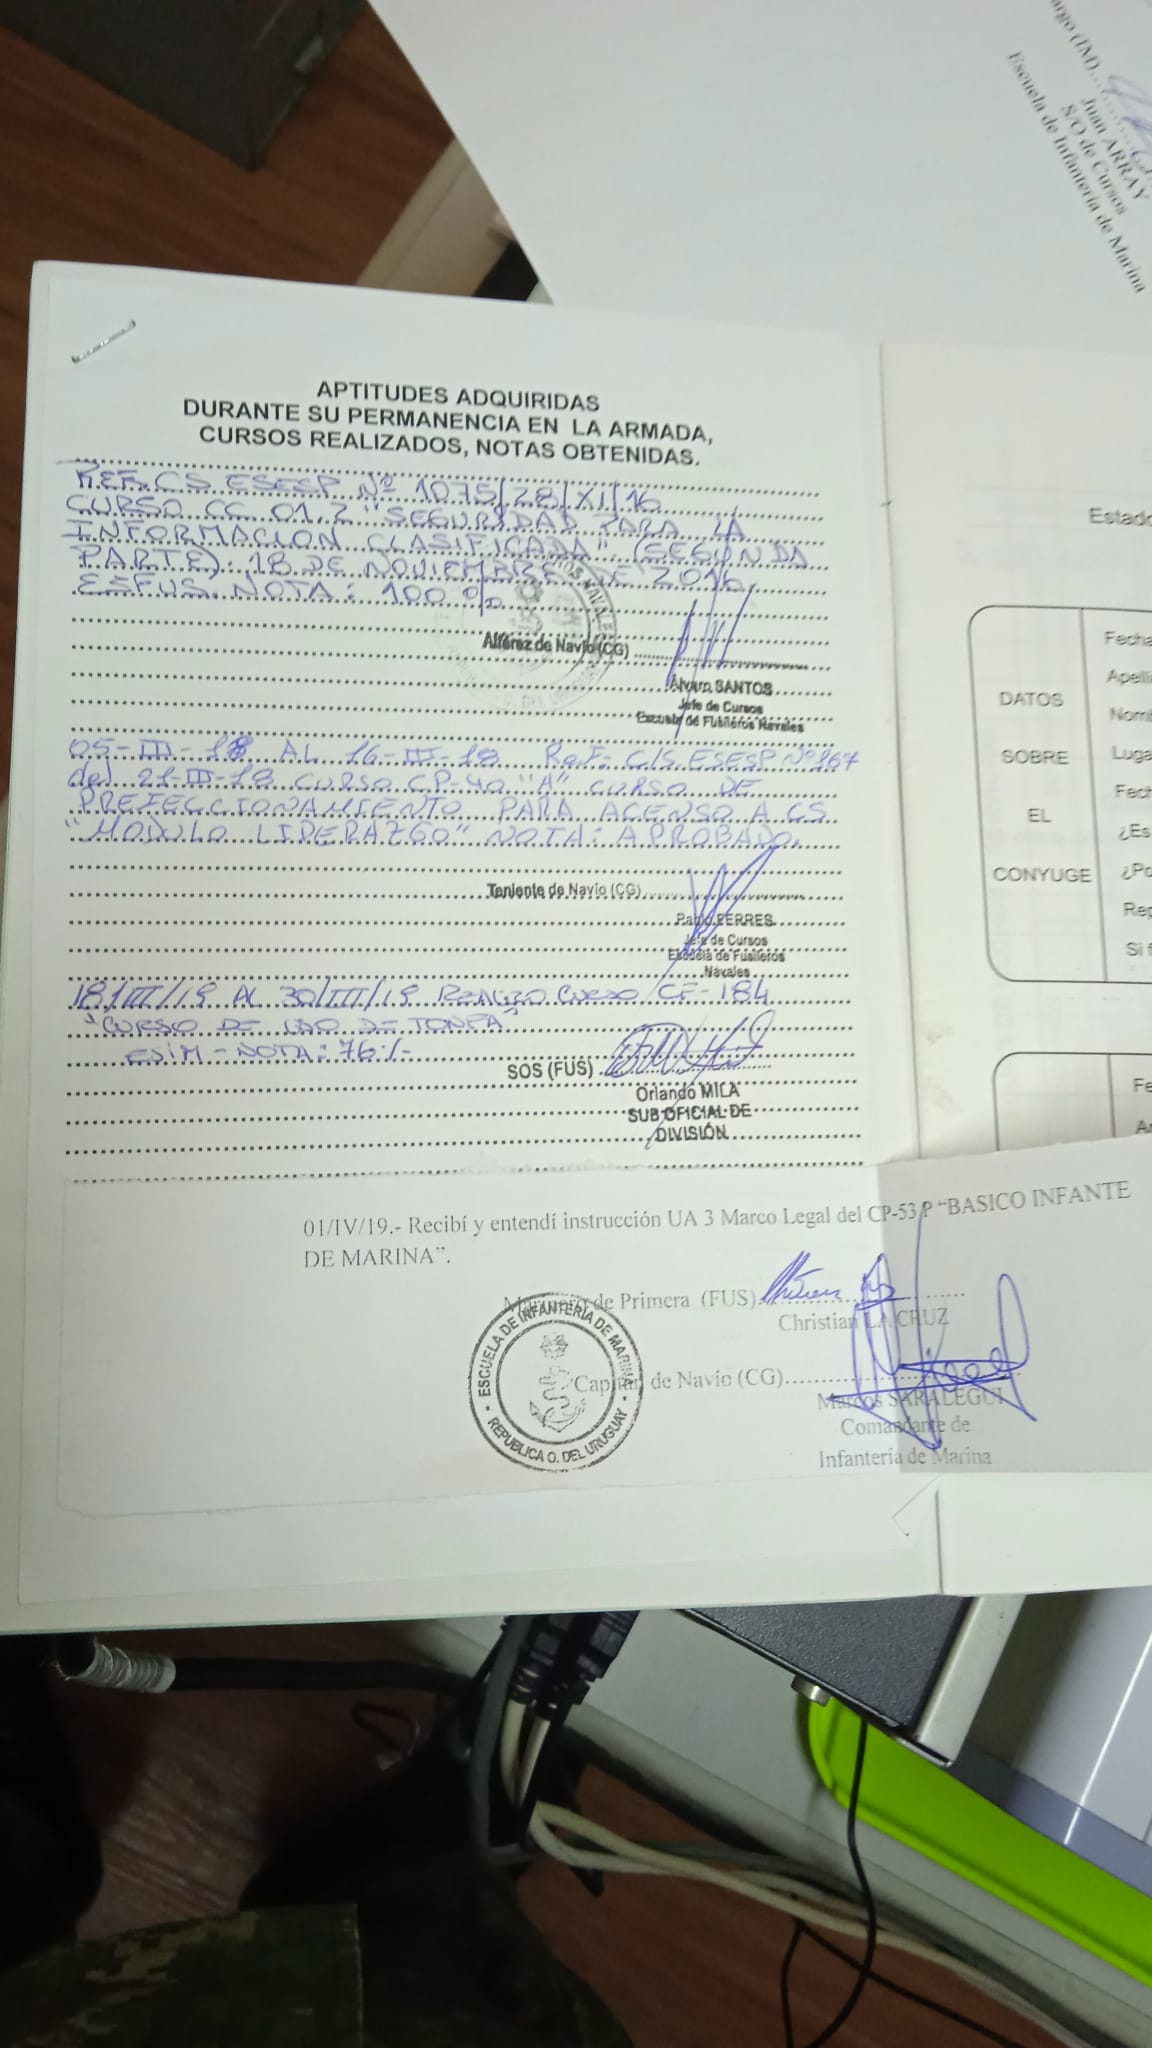 argo (IM)
Juan ARRAY
S/O de Cursos
Escuela de Infantería de Marina
APTITUDES ADQUIRIDAS
DURANTE SU PERMANENCIA EN LA ARMADA,
CURSOS REALIZADOS, NOTAS OBTENIDAS.
REF.CS ESESP Nº 1075/28/XI/16
CURSO CC 01.2 "SEGURIDAD PARA LA
INFORMACION CLASIFICADA". (SEGUNDA
PARTE). 18 DE NOVIEMBRE DE 2016
ESFUS. NOTA: 100 %
Alférez de Navío (CG)
Alvaro SANTOS
Jefe de Cursos
Escuela de Fusileros Navales
05-III-18 AL 16-III-18 Ref: C/S ESESP Nº267
del 21-III-18 CURSO CP-40 "A" CURSO DE
PERFECCIONAMIENTO PARA ACENSO A CS
"MODULO LIDERAZGO" NOTA: APROBADO.
Teniente de Navío (CG)
Pablo FERRES
Jefe de Cursos
Escuela de Fusileros
Navales
18/III/19 AL 30/III/19 REALIZO CURSO CF-184
"CURSO DE USO DE TONFA"
ESIM - NOTA: 76%
SOS (FUS)
Orlando MILA
SUB OFICIAL DE
DIVISIÓN
01/IV/19.- Recibí y entendí instrucción UA 3 Marco Legal del CP-53 P "BASICO INFANTE
DE MARINA".
Marinero de Primera (FUS)
Christian LA CRUZ
Capitán de Navío (CG)
Marcos SARALEGUI
Comandante de
Infantería de Marina
ESCUELA DE INFANTERIA DE MARINA
REPUBLICA O. DEL URUGUAY
Estado
DATOS
SOBRE
EL
CONYUGE
Fecha
Apelli
Nomb
Luga
Fech
¿Es
¿Po
Rep
Si f
Fe